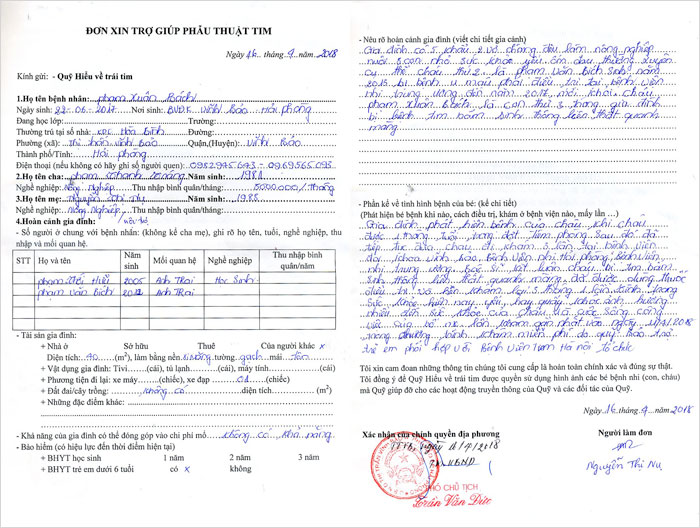 ĐƠN XIN TRỢ GIÚP PHẪU THUẬT TIM
Ngày 16 tháng 9 năm 2018
Kính gửi: - Quỹ Hiểu về trái tim
1.Họ tên bệnh nhân: Phạm Xuân Bách
Ngày sinh: 22-06-2017 Nơi sinh: BVĐK Vĩnh Bảo Hải Phòng
Đang học lớp: Trường:
Thường trú tại số nhà: KDC Hòa Bình Đường:
Phường (xã): Thị trấn Vĩnh Bảo Quận,(Huyện): Vĩnh Bảo
Thành phố/Tỉnh: Hải phòng
Điện thoại (nếu không có hãy ghi số người quen):
2.Họ tên cha: phạm Năm sinh: 1981
Nghề nghiệp: Nông Nghiệp Thu nhập bình quân/tháng: /Tháng
3.Họ tên mẹ: Nguyễn Thị Nụ Năm sinh: 1985
Nghề nghiệp: Nông Nghiệp Thu nhập bình quân/tháng:
4.Hoàn cảnh gia đình:
- Số người ở chung với bệnh nhân: (không kể cha mẹ), ghi rõ họ tên, tuổi, nghề nghiệp, thu
nhập và mối quan hệ.
STT Họ và tên Năm sinh Mối quan hệ Nghề nghiệp Thu nhập bình quân/năm
phạm Hiếu 2005 Anh Trai Học Sinh
phạm văn Bích Anh Trai
- Tài sản gia đình:
+ Nhà ở Sở hữu Thuê Của người khác x
Diện tích: 40 (m²), làm bằng nền: xi măng tường: gạch mái: tôn
+ Vật dụng gia đình: Tivi (cái), tủ lạnh (cái), máy tính (cái)
+ Phương tiện đi lại: xe máy (chiếc), xe đạp 01 (chiếc)
+ Đất đai/cây trồng: không có diện tích (m²)
+ Những đặc điểm khác:
- Khả năng của gia đình có thể đóng góp vào chi phí mổ không có khả năng
- Bảo hiểm (có hiệu lực đến thời điểm hiện tại)
+ BHYT học sinh 1 năm 2 năm 3 năm
+ BHYT trẻ em dưới 6 tuổi có x không
- Nêu rõ hoàn cảnh gia đình (viết chi tiết gia cảnh)
Gia đình có 5 khẩu 2 vợ chồng đều làm nông nghiệp
nuôi 3 con nhỏ sức khỏe yếu ốm đau thường xuyên
cụ thể cháu thứ 2 là phạm văn Bích sinh năm
bị bệnh u máu phải điều trị tại bệnh viện
nhi trung ương đến năm cháu
phạm xuân Bách là con thứ 3 trong gia đình
bị bệnh tim bẩm sinh thông liên thất quanh
màng
- Phần kể về tình hình bệnh của bé: (kể chi tiết)
(Phát hiện bé bệnh khi nào, cách điều trị, khám ở bệnh viện nào, mấy lần …)
Gia đình phát hiện bệnh của cháu khi cháu
được 1 tháng tuổi trong đợt tiêm phòng sau đó đã
tiếp tục đưa cháu đi khám 3 lần tại bệnh viện
đa khoa Vĩnh Bảo Bệnh viện nhi Hải phòng, Bệnh viện
nhi trung ương Bác sĩ kết luận cháu bị tim bẩm
sinh thông liên thất quanh màng
sức khỏe hiện nay yếu hay quấy khóc ảnh hưởng
nhiều đến sức khỏe của cháu và cuộc sống
của bố mẹ lần khám gần nhất vào ngày
trong chương trình khám miễn phí do quỹ bảo trợ
trẻ em phối hợp với Bệnh Viện Tim Hà nội Tổ chức
Tôi xin cam đoan những thông tin chúng tôi cung cấp là hoàn toàn chính xác và đúng sự thật.
Tôi đồng ý để Quỹ Hiểu về trái tim được quyền sử dụng hình ảnh các bệnh nhi (con, cháu)
mà Quỹ giúp đỡ cho các hoạt động truyền thông của Quỹ và các đối tác của Quỹ.
Ngày 16 tháng 9 năm 2018
Xác nhận của chính quyền địa phương Người làm đơn
TM UBND
PHÓ CHỦ TỊCH
Trần Văn Đức
Nguyễn Thị Nụ